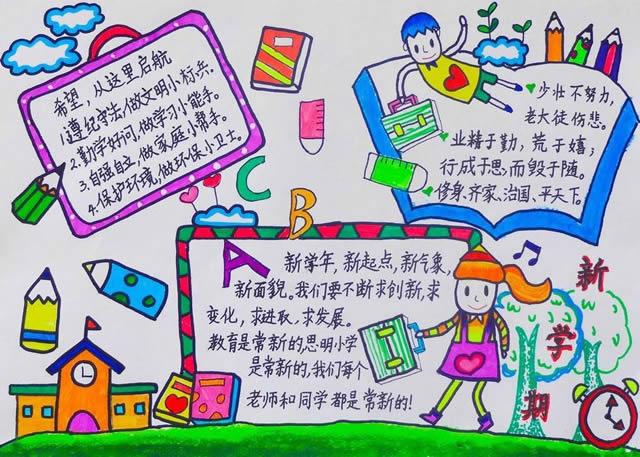 希望,从这里启航
1.遵纪守法,做文明小标兵。
2.勤学好问,做学习小能手。
3.自强自立,做家庭小帮手。
4.保护环境,做环保小卫士。
少壮不努力,
老大徒伤悲。
业精于勤,荒于嬉;
行成于思,而毁于随。
修身、齐家、治国、平天下。
C
B
A
新学年,新起点,新气象,
新面貌。我们要不断求创新,求
变化,求进取,求发展。
教育是常新的,思明小学
是常新的,我们每个
老师和同学都是常新的!
新
学
期